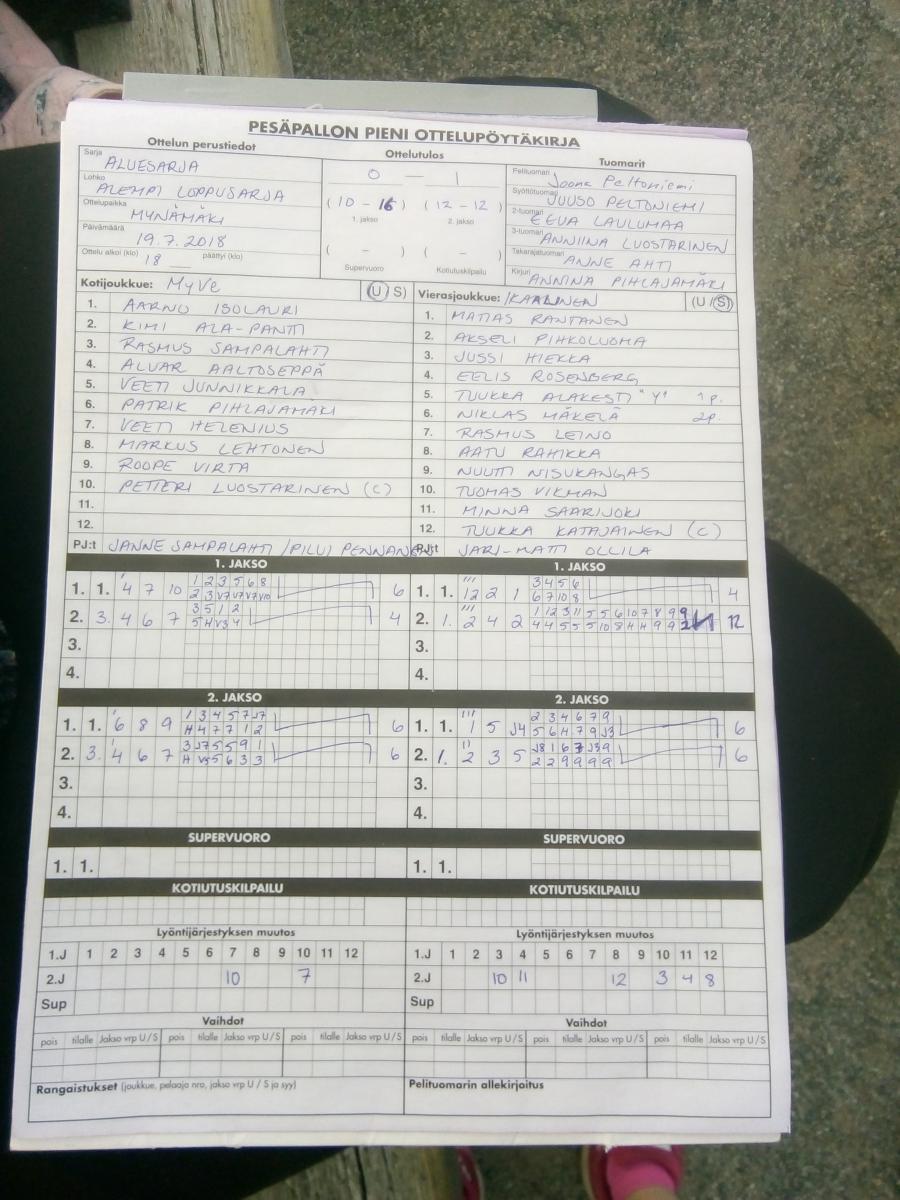 PESÄPALLON PIENI OTTELUPÖYTÄKIRJA
Ottelun perustiedot
Sarja ALUESARJA
Lohko ALEMPI LOPPUSARJA
Ottelupaikka MYNÄMÄKI
Päivämäärä 19.7.2018
Ottelu alkoi (klo) 18 päättyi (klo)
Ottelutulos
0 — 1
(10 - 16) (12 - 12)
1. jakso 2. jakso
( - ) ( - )
Supervuoro Kotiutuskilpailu
Tuomarit
Pelituomari Joona Peltoniemi
Syöttötuomari JUUSO PELTONIEMI
2-tuomari EEVA LAULUMAA
3-tuomari ANNIINA LUOSTARINEN
Takarajatuomari ANNE AHTI
Kirjuri ANNINA PIHLAJAMÄKI
Kotijoukkue: MyVe (U/S)
1. AARNO ISOLAURI
2. KIMI ALA-PANTTI
3. RASMUS SAMPALAHTI
4. ALVAR AALTOSEPPÄ
5. VEETI JUNNIKKALA
6. PATRIK PIHLAJAMÄKI
7. VEETI HELENIUS
8. MARKUS LEHTONEN
9. ROOPE VIRTA
10. PETTERI LUOSTARINEN (C)
11.
12.
PJ:t JANNE SAMPALAHTI / PILVI PENNANEN
Vierasjoukkue: IKAALINEN (U/S)
1. MATIAS RANTANEN
2. AKSELI PIHKOLUOMA
3. JUSSI HIEKKA
4. EELIS ROSENBERG
5. TUUKKA ALAKESTI "Y" 1p.
6. NIKLAS MÄKELÄ 2p.
7. RASMUS LEINO
8. AATU RAHIKKA
9. NUUTTI NISUKANGAS
10. TUOMAS VIKMAN
11. MINNA SAARIJOKI
12. TUUKKA KATAJAINEN (C)
PJ:t JARI-MATTI OLLILA
1. JAKSO
1. 1. 4 7 10 1 2 3 5 6 8 6
2. 3. 4 6 7 3 5 1 2 4
3.
4.
1. JAKSO
1. 1. 12 2 1 3 4 5 6 4
6 7 10 8
2. 1. 2 4 2 1 12 3 11 5 5 6 10 7 8 9 9 12
3.
4.
2. JAKSO
1. 1. 6 8 9 1 3 4 5 7 J7 6
H 4 7 7 1 2
2. 3. 4 6 7 3 J7 5 5 9 1 6
H V5 5 6 3 3
3.
4.
2. JAKSO
1. 1. 1 5 J4 2 3 4 6 7 9 6
5 6 H 7 9 J3
2. 1. 2 3 5 J8 1 6 7 J3 9 6
2 2 9 9 9 9
3.
4.
SUPERVUORO
1. 1.
SUPERVUORO
1. 1.
KOTIUTUSKILPAILU
KOTIUTUSKILPAILU
Lyöntijärjestyksen muutos
1.J 1 2 3 4 5 6 7 8 9 10 11 12
2.J 10 7
Sup
Lyöntijärjestyksen muutos
1.J 1 2 3 4 5 6 7 8 9 10 11 12
2.J 10 11 12 3 4 8
Sup
Vaihdot
pois tilalle Jakso vrp U/S pois tilalle Jakso vrp U/S pois tilalle Jakso vrp U/S
Vaihdot
pois tilalle Jakso vrp U/S pois tilalle Jakso vrp U/S pois tilalle Jakso vrp U/S
Rangaistukset (joukkue, pelaaja nro, jakso vrp U / S ja syy)
Pelituomarin allekirjoitus